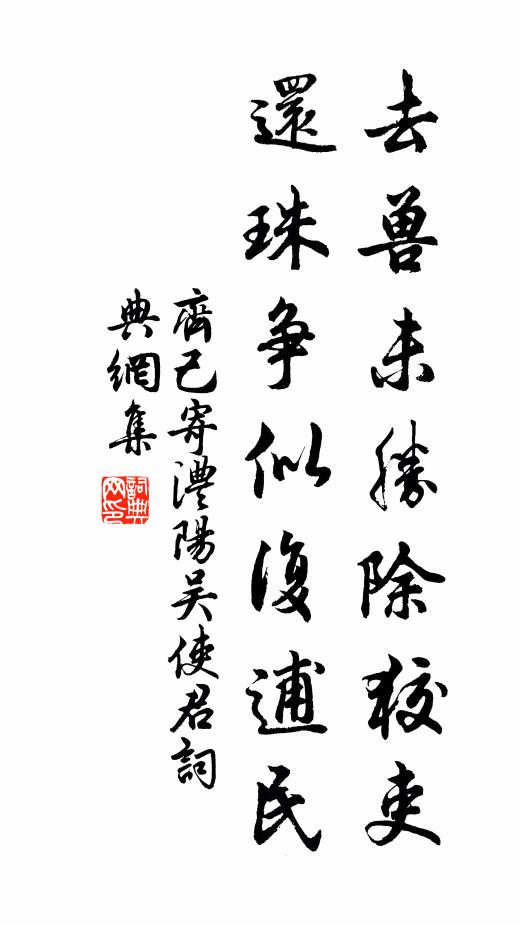 去兽未勝除狡吏
還珠争似復逋民
齊己寄澧陽吴使君詞
典網集
詞典网印